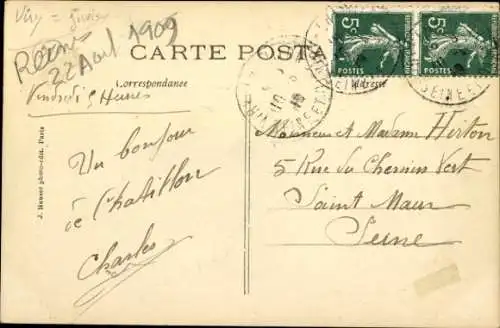 Viry =
22 Août 1909
CARTE POSTALE
Correspondance
Adresse
Vendredi 5 Heures
5c 5c
POSTES POSTES
SEINE ET
Un bonjour
de Chatillon
Charles
Monsieur et Madame Hirton
5 Rue du Chemin Vert
Saint Maur
Seine
J. Hauser photo-édit. Paris